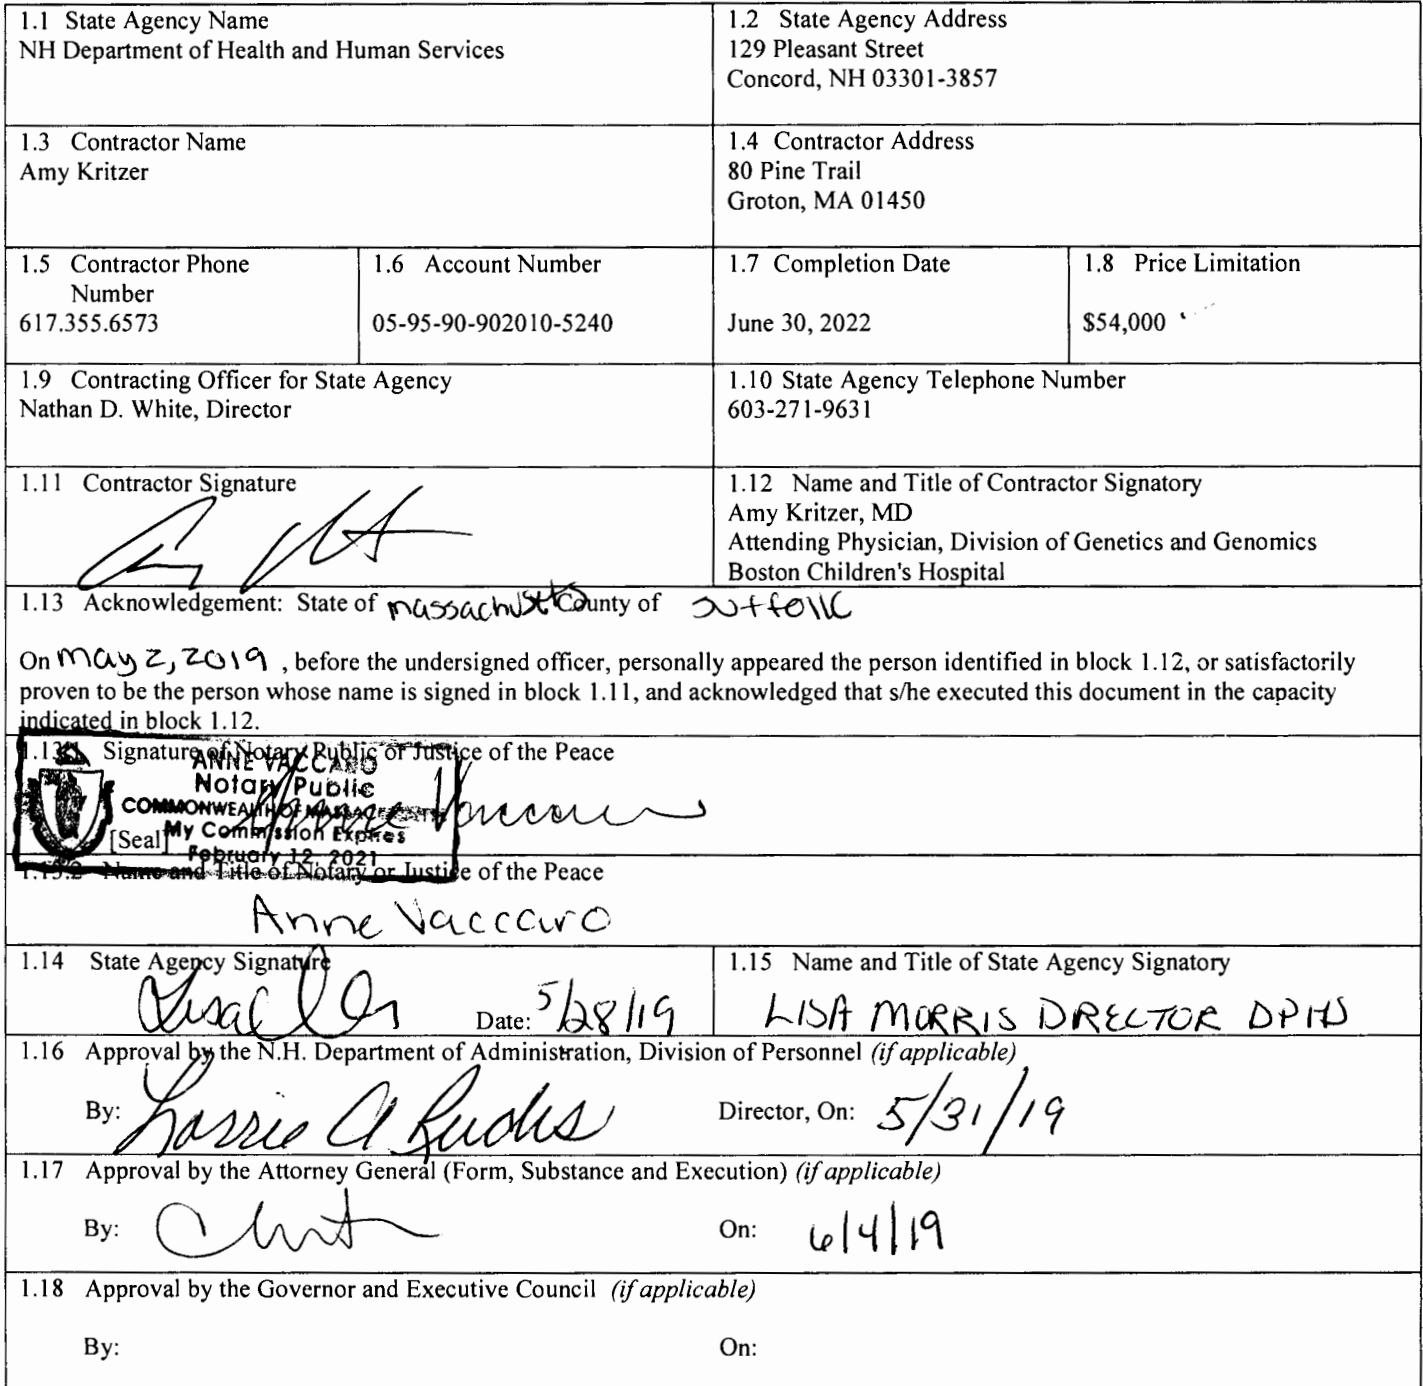 1.1 State Agency Name
NH Department of Health and Human Services
1.2 State Agency Address
129 Pleasant Street
Concord, NH 03301-3857
1.3 Contractor Name
Amy Kritzer
1.4 Contractor Address
80 Pine Trail
Groton, MA 01450
1.5 Contractor Phone
Number
617.355.6573
1.6 Account Number
05-95-90-902010-5240
1.7 Completion Date
June 30, 2022
1.8 Price Limitation
$54,000
1.9 Contracting Officer for State Agency
Nathan D. White, Director
1.10 State Agency Telephone Number
603-271-9631
1.11 Contractor Signature
1.12 Name and Title of Contractor Signatory
Amy Kritzer, MD
Attending Physician, Division of Genetics and Genomics
Boston Children's Hospital
1.13 Acknowledgement: State of massachusetts County of suffolk
On may 2, 2019 , before the undersigned officer, personally appeared the person identified in block 1.12, or satisfactorily
proven to be the person whose name is signed in block 1.11, and acknowledged that s/he executed this document in the capacity
indicated in block 1.12.
1.13.1 Signature of Notary Public or Justice of the Peace
ANNE VACCARO
Notary Public
COMMONWEALTH OF MASSACHUSETTS
My Commission Expires
February 12, 2021
Anne Vaccaro
[Seal]
1.13.2 Name and Title of Notary or Justice of the Peace
Anne Vaccaro
1.14 State Agency Signature
Date: 5/28/19
1.15 Name and Title of State Agency Signatory
LISA MORRIS DIRECTOR DPHS
1.16 Approval by the N.H. Department of Administration, Division of Personnel (if applicable)
By:
Director, On: 5/31/19
1.17 Approval by the Attorney General (Form, Substance and Execution) (if applicable)
By:
On: 6/4/19
1.18 Approval by the Governor and Executive Council (if applicable)
By:
On: